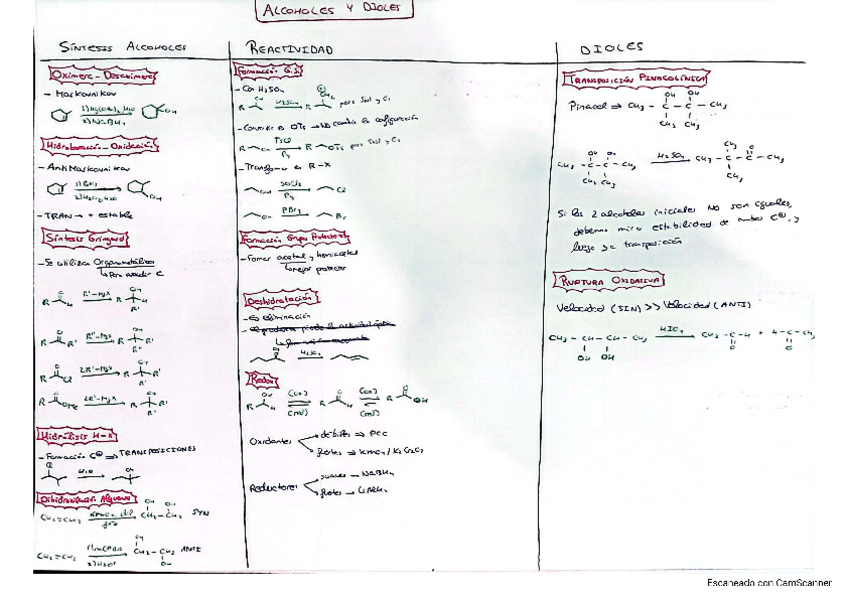 ALCOHOLES Y DIOLES
SÍNTESIS ALCOHOLES
Oximerc-Desoximerc
- Markovnikov
1) Hg(OAc)2, H2O
2) NaBH4
OH
Hidroboración-Oxidación
- Anti Markovnikov
1) BH3
2) H2O2, H2O
OH
- TRAN → + estable
Síntesis Gringard
- Se utiliza Organometálico
↳ Para añadir C
R'-MgX
R'-MgX
2R'-MgX
2R'-MgX
Hidrólisis H-X
- Formación C⊕ => TRANSPOSICIONES
H2O
Dihidroxilación Alquenos
CH2=CH2 KMnO4 dil frío CH2-CH2 SYN
OH OH
CH2=CH2 1) mCPBA 2) H3O+ CH2-CH2 ANTI
OH
OH
REACTIVIDAD
Formación G.S.
- Con H2SO4
H2SO4 para Sn1 y E1
- Convertir en OTs → No cambia la configuración
R OH TsCl Py R OTs para Sn2 y E2
- Transformar en R-X
OH SOCl2 Py Cl
OH PBr3 Br
Formación Grupo Protector
- Formar acetal y hemiacetal
↳ mejor protector
Deshidratación
- Es eliminación
H2SO4
Redox
(ox)
(red)
(ox)
(red)
Oxidantes
débiles => PCC
fuertes → KMnO4 / K2Cr2O7
Reductores
suaves → NaBH4
fuertes → LiAlH4
DIOLES
TRANSPOSICIÓN PINACOLÍNICA
OH OH
Pinacol => CH3 - C - C - CH3
CH3 CH3
OH OH
CH3 - C - C - CH3 H2SO4 CH3 - C - C - CH3
CH3 CH3
CH3 O
CH3
Si los 2 alcoholes iniciales NO son iguales,
debemos mirar estabilidad de ambos C⊕, y
luego ya transposición
RUPTURA OXIDATIVA
Velocidad (SIN) >> Velocidad (ANTI)
CH3 - CH - CH - CH3 HIO4 CH3 - C - H + H - C - CH3
OH OH O O
Escaneado con CamScanner